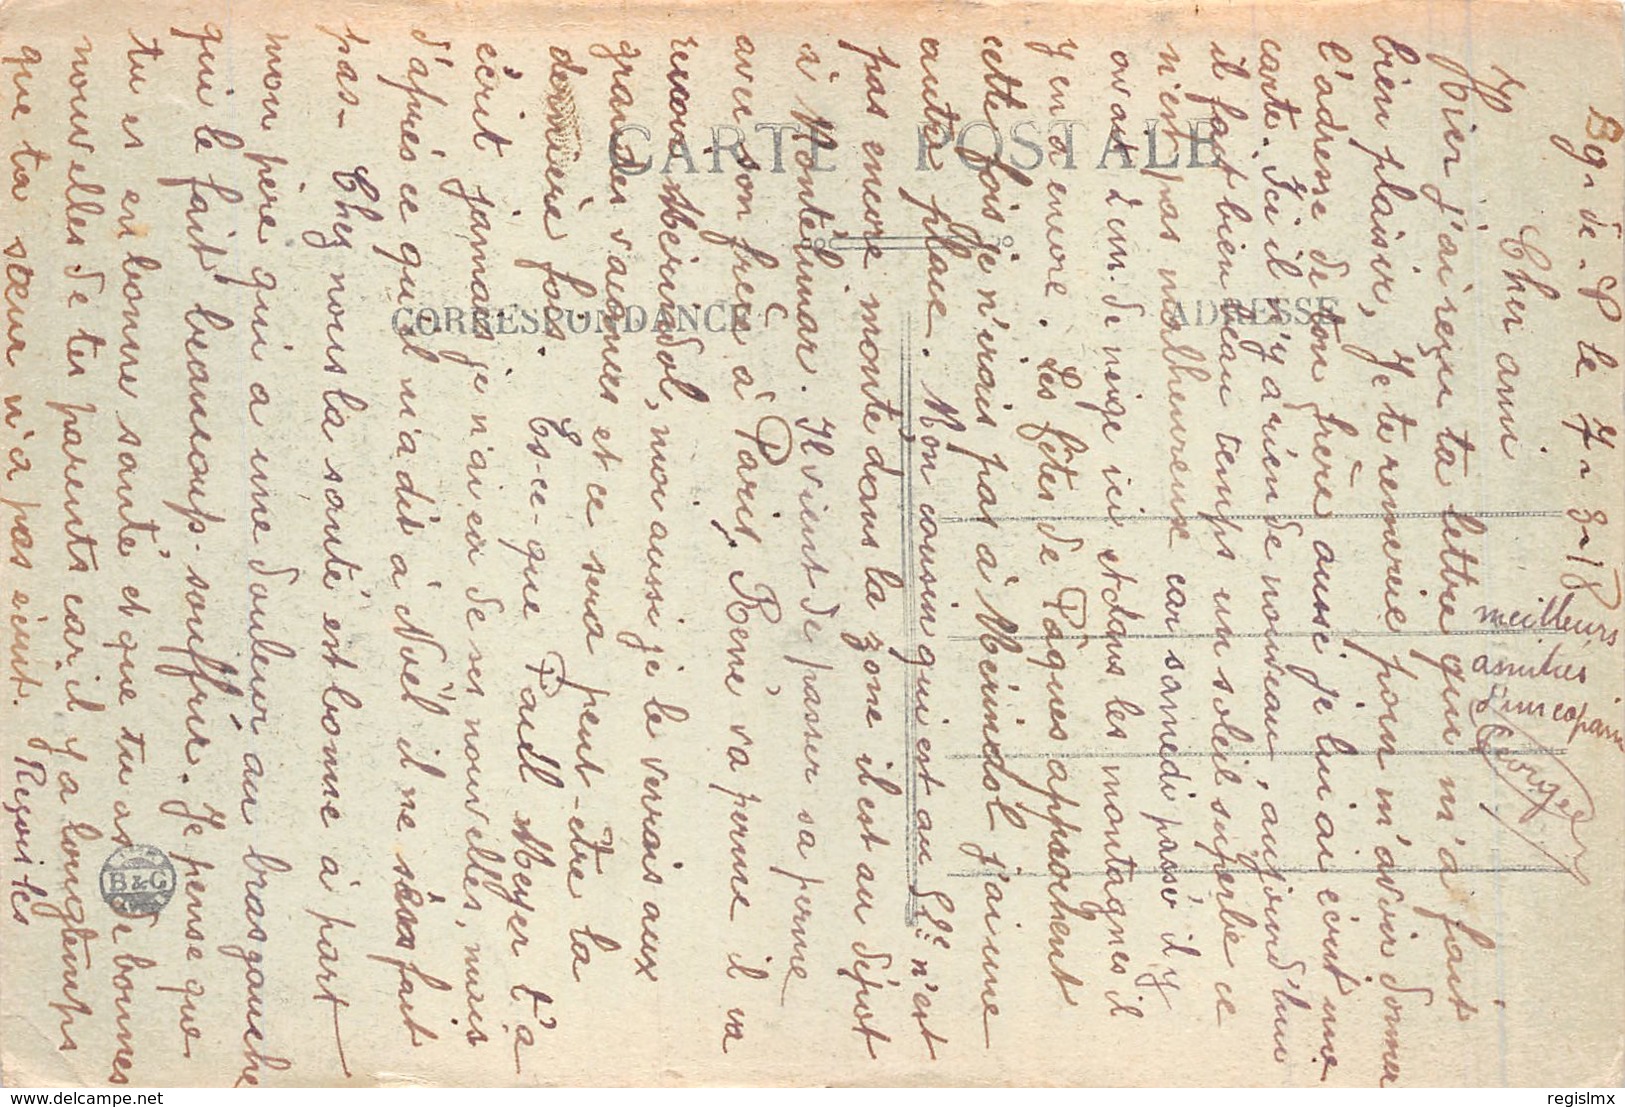 Bg. de. P le 7-3-18
Cher ami
Hier j'ai reçu ta lettre qui m'a fait
bien plaisir, je te remercie pour m'avoir donner
l'adresse de ton frère aussi je lui ai écrit une
carte. Ici il n'y a rien de nouveau, aujourd'hui
il fait bien beau temps un soleil superbe ce
n'est pas malheureux car samedi passé il y
avait 2 cm. de neige ici et dans les montagnes il
y en a encore. Les fêtes de Pâques approchent
cette fois je n'irais pas à Mérindol j'ai une
autre place. Mon cousin qui est au n'est
pas encore monté dans la zone il est au dépot
à Montélimar. Il vient de passer sa perme
avec son frère à Paris, René va perme il va
revoir Mérindol, moi aussi je le verrais aux
grandes vacances et ce sera peut-être la
dernière fois. Es-ce-que Paul Meyer t'a
écrit jamais je n'ai eu de ses nouvelles, mais
d'après ce qu'il m'a dit à Noël il ne fait
pas- Chez nous la santé est bonne à part
mon père qui a une douleur au bras gauche
qui le fait beaucoup souffrir. Je pense que
tu es en bonne santé et que tu as de bonnes
nouvelles de tes parents car il y a longtemps
que ta sœur n'a pas écrit. Reçois les
meilleurs
amitiés
d'un copain
Georges
CARTE POSTALE
CORRESPONDANCE
ADRESSE
B & G
delcampe.net
regislmx